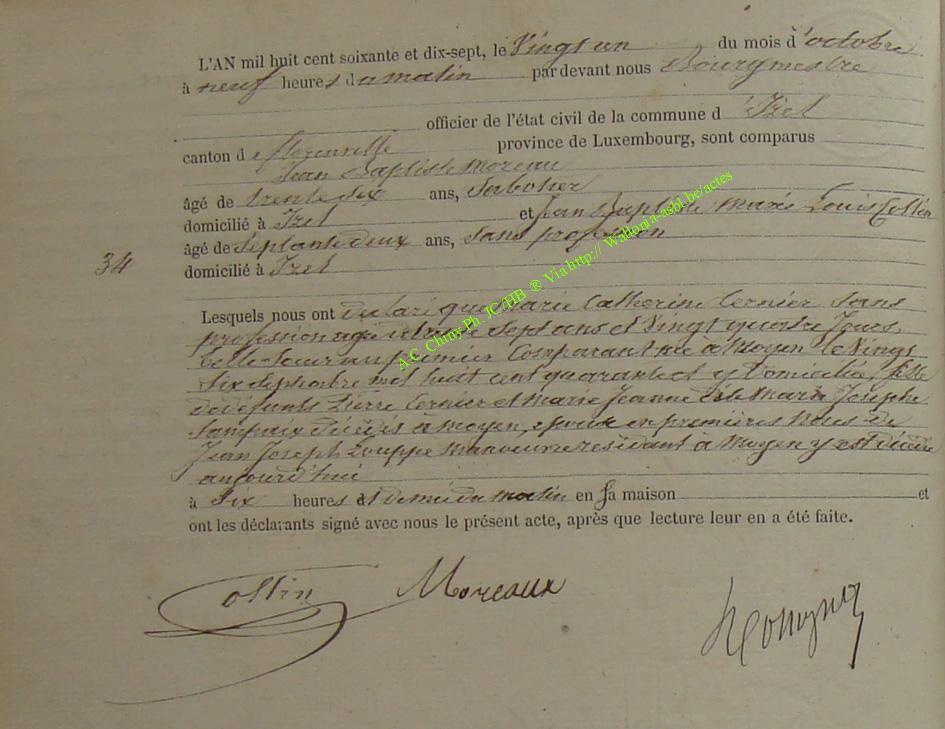 L'AN mil huit cent soixante et dix-sept, le Vingt un du mois d'octobre
à neuf heures du matin par devant nous Bourgmestre
officier de l'état civil de la commune d'Izel
canton de florenville province de Luxembourg, sont comparus
Jean Baptiste Moreau
âgé de trente six ans, Sabotier
domicilié à Izel et Jean Baptiste Marie Louis Collin
âgé de Septante deux ans, sans profession
34
domicilié à Izel
Lesquels nous ont déclaré que Marie Catherine Cernier sans
profession agée de trente sept ans et Vingt quatre Jours,
belle-soeur au premier Comparant née à Moyen le Vingt
Six Septembre mil huit cent quarante et y Domiciliée, fille
de défunts Pierre Cernier et Marie Jeanne Marie Josephe
Lampaix décédés à Moyen, épouse en premières Noces de
Jean Joseph Louppe Manoeuvre résidant à Moyen y est décédée
aujourd'hui
à Six heures et demie du matin en sa maison et
ont les déclarants signé avec nous le présent acte, après que lecture leur en a été faite.
Collin Moreaux
A.C. Chiny Ph. JC/HB ® Via http:// Wallonia-asbl.be/actes